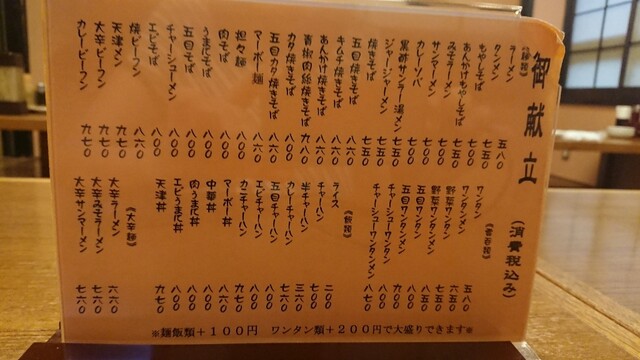 御献立
(消費税込み)
《麺類》
ラーメン 五八〇
タンメン 七五〇
もやしそば 七〇〇
あんかけもやしそば 七五〇
みそラーメン 七〇〇
サンマーメン 七〇〇
カレーソバ 七〇〇
黒酢サンラー湯メン 七五〇
ジャージャーメン 七五〇
焼きそば 七五〇
五目焼きそば 八六〇
キムチ焼きそば 八六〇
あんかけ焼きそば 八六〇
青椒肉絲焼きそば 九八〇
カタ焼きそば 八〇〇
五目カタ焼きそば 八六〇
マーボー麺 八六〇
担々麺 八〇〇
肉そば 八〇〇
うまにそば 八〇〇
五目そば 八〇〇
チャーシューメン 八〇〇
エビそば 八〇〇
焼ビーフン 八六〇
天津メン 九七〇
大辛ビーフン 九七〇
カレービーフン 九七〇
《雲呑類》
ワンタン 五八〇
ワンタンメン 六五〇
野菜ワンタン 七五〇
野菜ワンタンメン 八五〇
五目ワンタン 八〇〇
五目ワンタンメン 九〇〇
チャーシューワンタン 八〇〇
チャーシューワンタンメン 八七〇
《飯類》
ライス 二〇〇
チャーハン 七〇〇
半チャーハン 三六〇
カレーチャーハン 七六〇
五目チャーハン 八〇〇
エビチャーハン 八〇〇
カニチャーハン 九七〇
マーボー丼 八六〇
中華丼 八〇〇
肉うまに丼 八〇〇
エビうまに丼 八〇〇
天津丼 九七〇
《大辛麺》
大辛ラーメン 六六〇
大辛みそラーメン 七六〇
大辛サンマーメン 七六〇
※麺飯類+100円 ワンタン類+200円で大盛りできます※